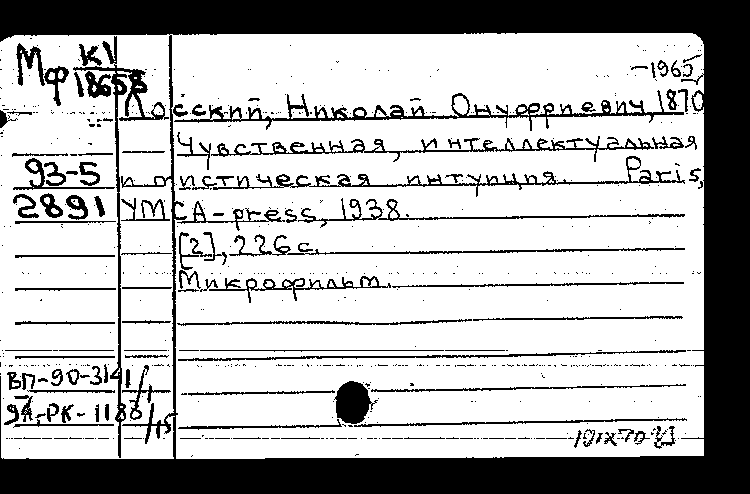 Мф К1
18658
-1965
Лосский, Николай Онуфриевич, 1870
Чувственная, интеллектуальная
93-5 и мистическая интуиция. Paris,
2891 YMCA-press, 1938.
[2], 226 с.
Микрофильм.
ВП-90-3141/1
9А-РК-1188/15